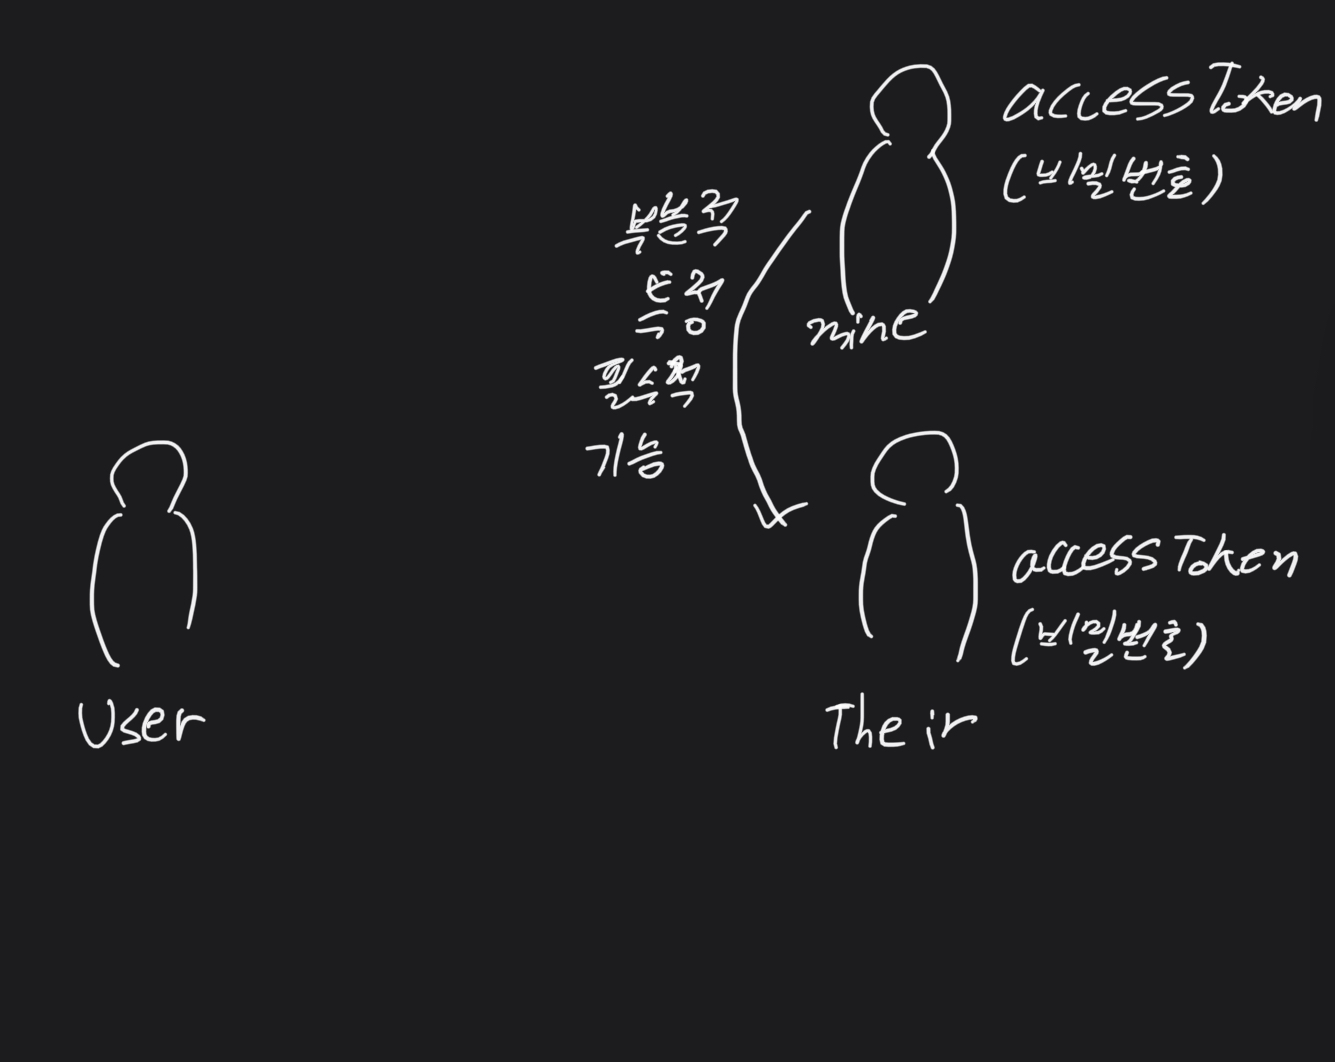 accessToken
(비밀번호)
부분적
특정
필수적
기능
mine
accessToken
(비밀번호)
User
Their